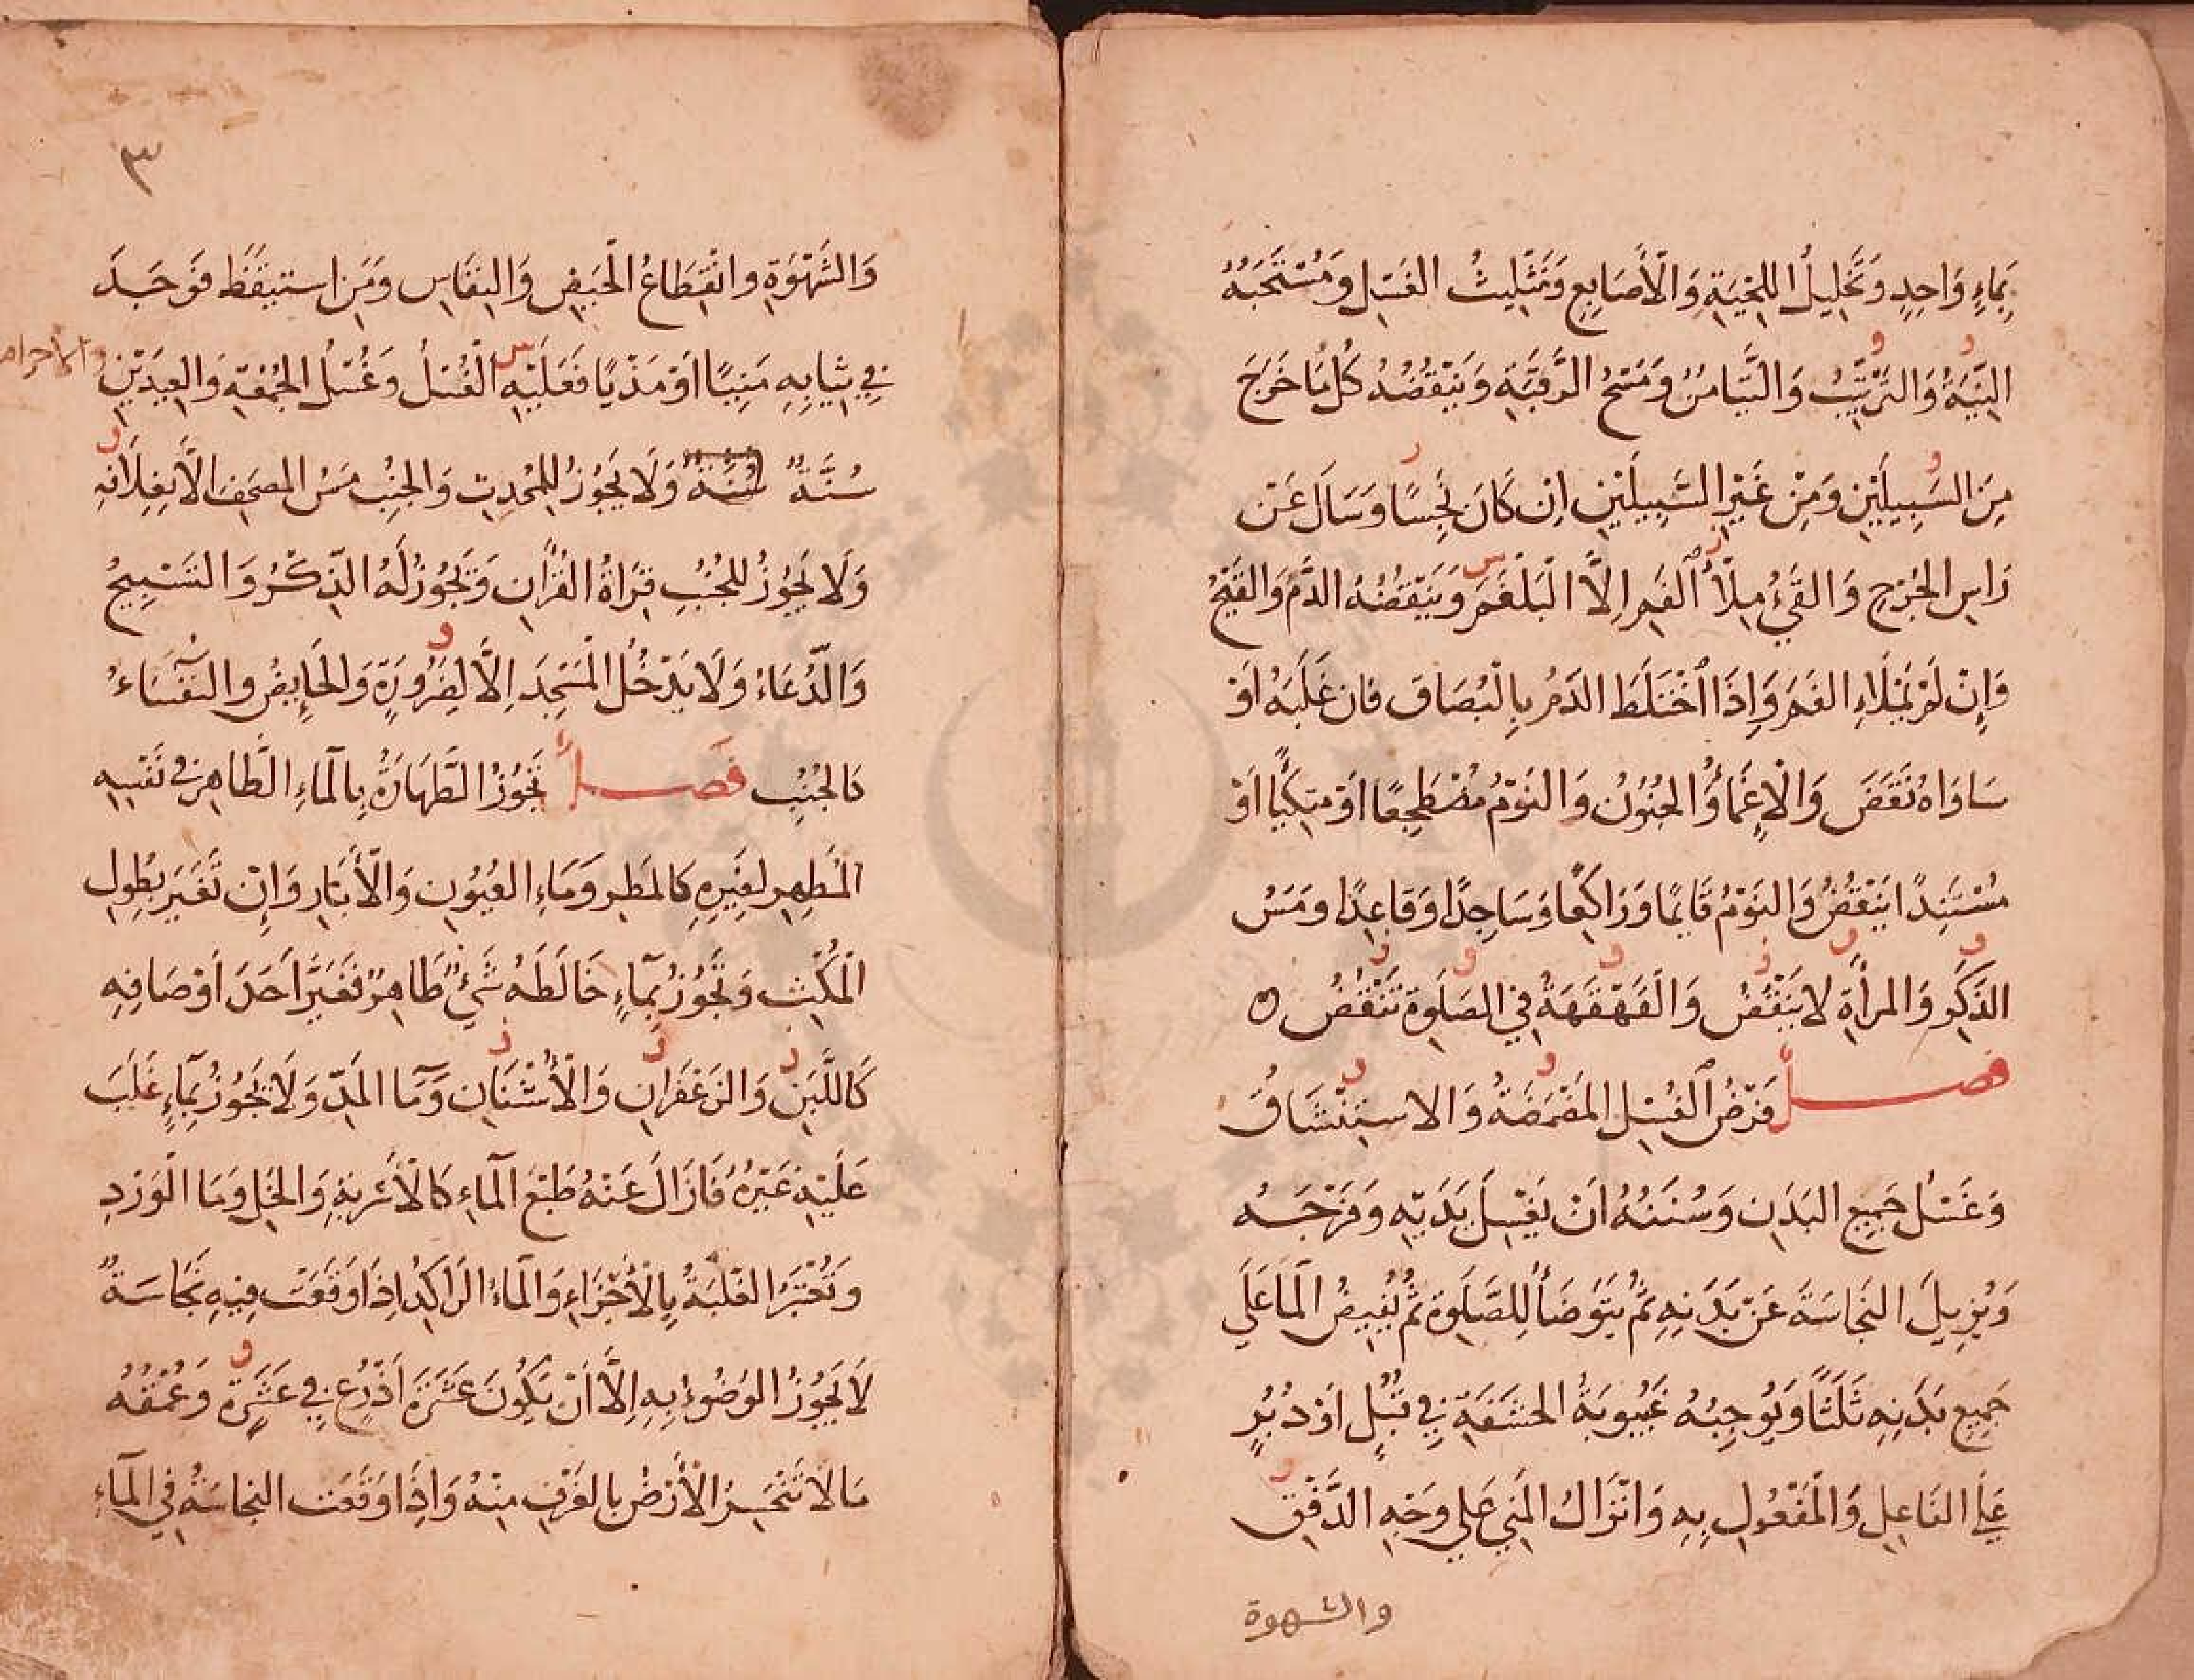 بِمَاءٍ وَاحِدٍ وَتَخْلِيلُ اللِّحْيَةِ وَالْأَصَابِعِ وَتَثْلِيثُ الغَسْلِ وَمُسْتَحَبُّهُ
النِّيَّةُ وَالتَّرْتِيْبُ وَالتَّيَامُنُ وَمَسْحُ الرَّقَبَةِ وَيَنْقُضُهُ كُلُّ مَا خَرَجَ
مِنَ السَّبِيلَيْنِ وَمِنْ غَيْرِ السَّبِيلَيْنِ اِنْ كَانَ نَجِسًا وَسَالَ عَنْ
رَاسِ الجُرْحِ وَالقَيْءُ مِلْأَ الفَمِ اِلَّا الْبَلْغَمَ وَيَنْقُضُهُ الدَّمُ وَالقَيْحُ
وَاِنْ لَمْ يَمْلَاءِ الفَمَ وَاِذَا اخْتَلَطَ الدَمُ بِالْبُصَاقِ فان غَلَبَهُ اَوْ
سَاوَاهُ نَقَضَ وَالْاِغْمَاؤُ الجُنُوْنُ وَالنَوْمُ مُضْطَجِعًا اَوْ متكِيًا اَوْ
مُسْتَنِدًا يَنْقُضُ وَالنَوْمُ قَايمًا وَرَاكِعًا وَسَاجِدًا وَقَاعِدًا ومَسُّ
الذَكَرِ وَالمرأَةِ لا يَنْقُضُ وَالْقَهْقَهَةُ فِي الصَلَوةِ تَنْقُضُ ٥
فصــل فَرْضُ الْغُسْلِ المَضْمَضَةُ وَالاستِنْشَاقُ
وَغَسْلُ جَمِيعِ البَدَنِ وَسُنَنُهُ اَنْ يَغْسِلَ يَدَيْهِ وَفَرْجَهُ
وَيُزِيلَ النَجَاسَةَ عَنْ بَدَنِهِ ثُمَّ يَتَوَضَأُ لِلصَّلَوةِ ثُمَّ يُفِيضُ الْمَا عَلَي
جَمِيعِ بَدَنِهِ ثَلَثًا وَيُوجِبُهُ غَيْبُوبَةُ الحشَفَةِ فِي قُبُلٍ اَوْ دُبُرٍ
عَلَى الفَاعِلِ وَالْمَفْعُولِ بِهِ وَانْزَالُ المَنِي عَلي وَجْهِ الدَّفْقِ
والشهوة
٣
وَالشَهْوَةِ وانْقِطَاعُ الْحَيضِ وَالنِفَاسِ وَمَن استيقَظَ فَوَجَدَ
فِي ثِيَابِهِ مَنِيًا اَوْ مَذْيًا فَعَلَيْهِ الْغُسْلُ وَغُسْلُ الجُمُعَةِ وَالعِيدَيْنِ
والاحرام
سُنَّةٌ وَلَا يَجُوزُ للمُحْدِثِ وَالجُنبِ مَسُّ المصحَفِ الَّا بغِلَافِهِ
وَلَا يَجُوزُ للجُنُبِ قِرَاةُ القُرْآنِ وَيَجُوزُ لَهُ الذِّكْرُ وَالتَسْبِيحُ
وَالدُّعَاءُ وَلَا يَدْخُلُ الْمَسْجِدَ اِلَّا لِضَرُورَةٍ وَالحَايِضُ والنُفَسَاءُ
كالجُنُبِ فصــل تَجُوزُ الطَهَارَةُ بِالْمَاءِ الطَّاهِرِ في نَفْسِهِ
المُطَهِرِ لغَيرِهِ كالمَطَرِ وَمَاءِ العُيُونِ وَالْأَبَارِ وَاِنْ تَغَيَّرَ بِطُولِ
الْمُكْثِ وَتَجُوزُ بِمَاءٍ خَالَطَهُ شَيْءٌ طَاهِرٌ فَغَيَّرَ اَحَدَ اَوْصَافِهِ
كَاللَّبَنِ وَالزَعْفَرانِ وَالْأُشْنَانِ وَمَا المَدِّ وَلَا يَجُوزُ بِمَاءٍ غَلَبَ
عَلَيْهِ غَيْرُهُ فَازَالَ عَنْهُ طَبْعَ الْمَاءِ كَالْأَشْرِبَةِ وَالخَلِ وَمَا الْوَرْدِ
وَتُعْتَبَرُ الغَلَبَةُ بِالْأَجْزَاءِ وَالْمَاءُ الرَاكِدُ اِذَا وَقَعَتْ فِيْهِ نَجَاسَةٌ
لَا يَجُوزُ الوُضُوءُ بِهِ اِلَّا اَنْ يَكُونَ عَشَرَةَ اَذْرُعٍ فِي عَشَرَةٍ وَعُمْقُهُ
مَا لَا تَنْحَسِرُ الْأَرْضُ بِالغَرْفِ مِنْهُ وَاِذَا وَقَعَت النجاسَةُ فِي الْمَاءِ